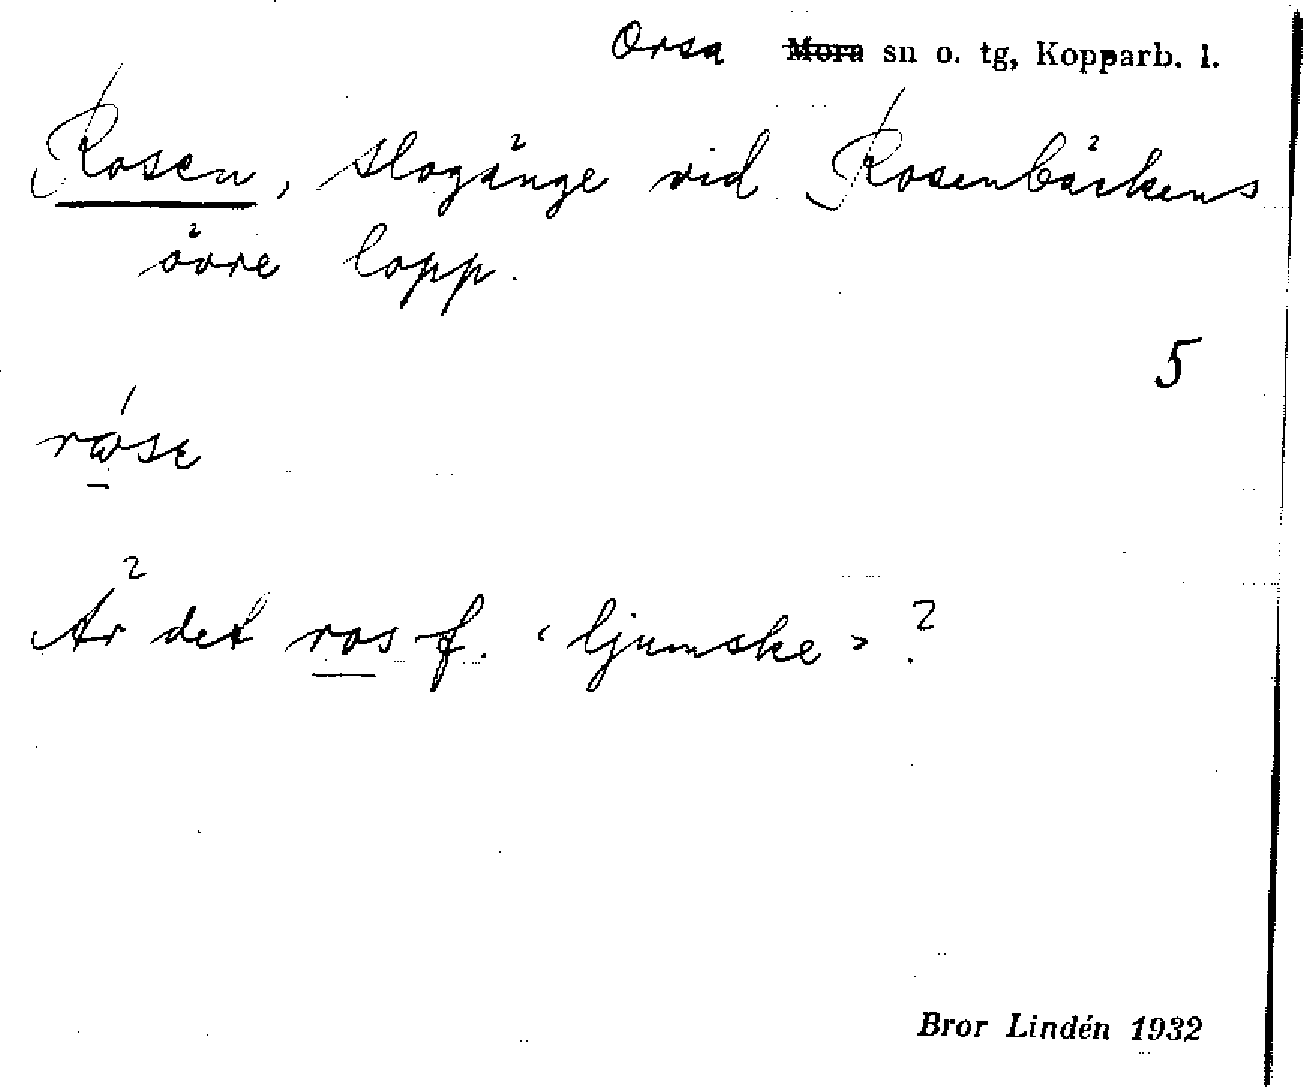 Orsa ~~Mora~~ sn o. tg, Kopparb. l.
Rosen, slogänge vid Rosenbäckens
övre lopp.
5
Är det ros f. ‹ ljumske › ?
Bror Lindén 1932